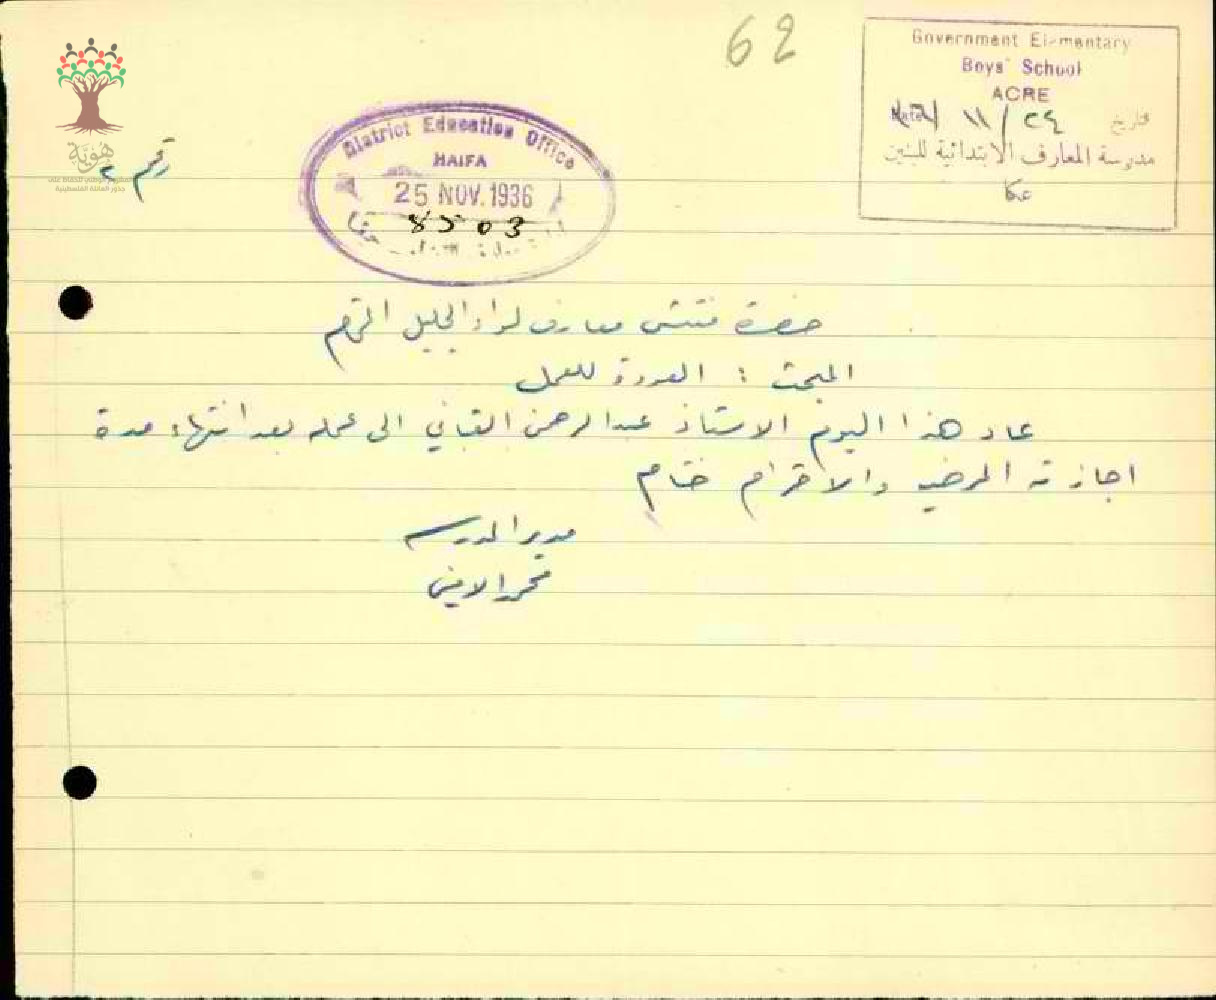 62
Government Elementary
Boys' School
ACRE
Date تاريخ ٢٤/ ١١/
مدرسة المعارف الابتدائية للبنين
عكا
District Education Office
HAIFA
25 NOV. 1936
8503
هوية
رقم
حضرة مفتش معارف لواء الجليل المحترم
المبحث : العودة للعمل
عاد هذا اليوم الاستاذ عبدالرحمن القباني الى عمله بعد انتهاء مدة
اجازته المرضيه والاحترام ختام
مدير المدرسه